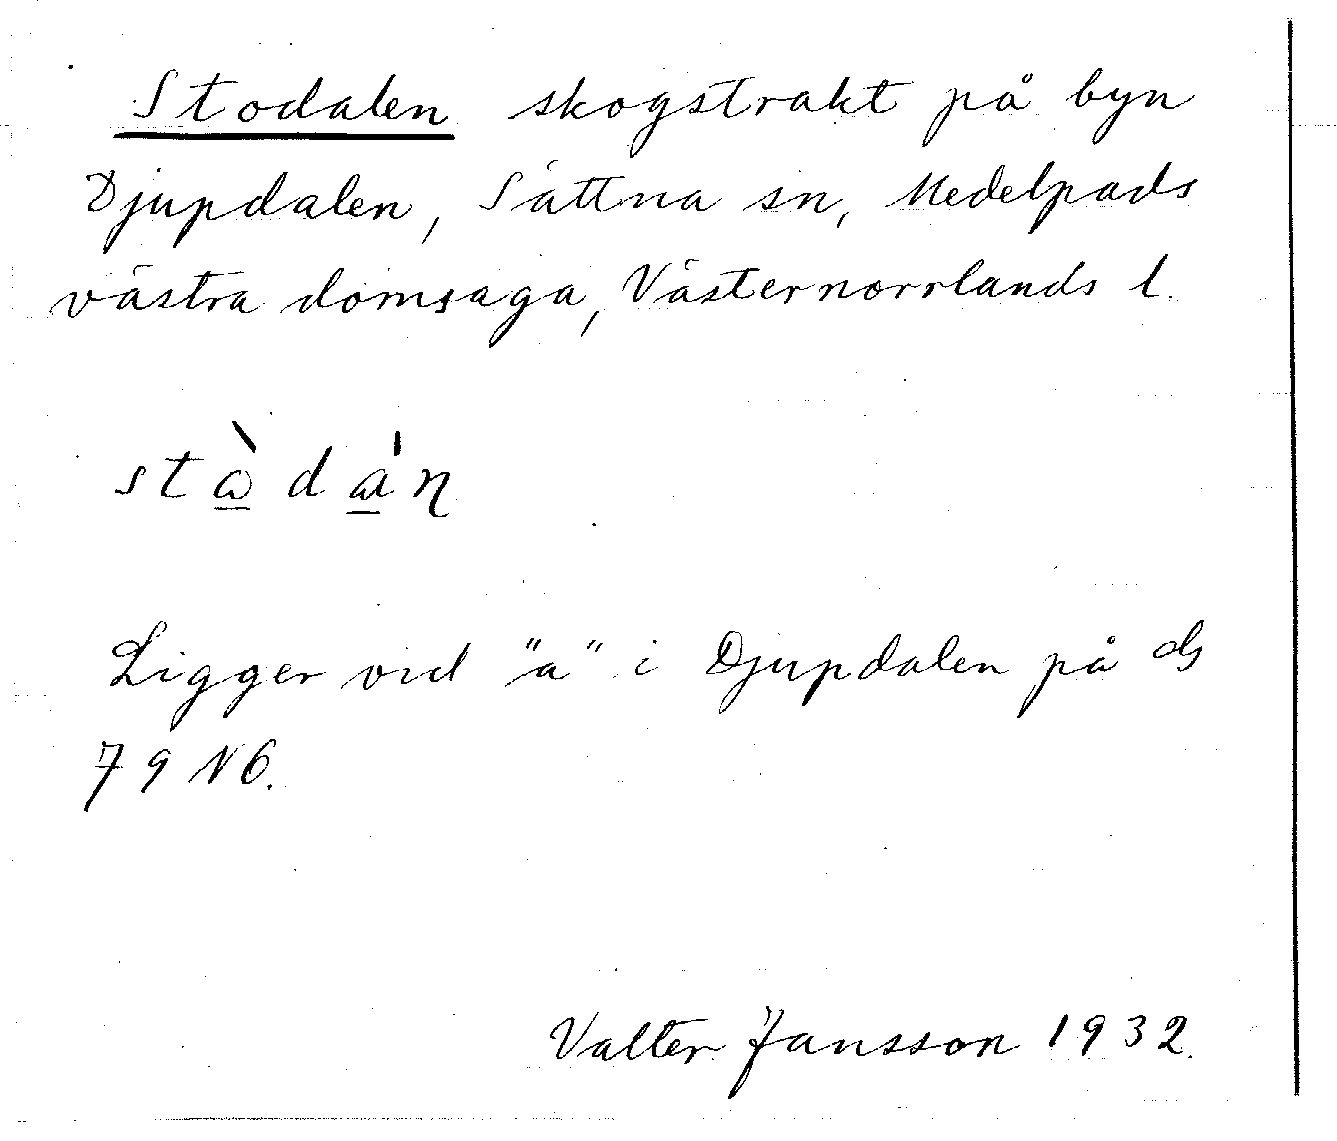 Stodalen skogstrakt på byn
Djupdalen, Sättna sn, Medelpads
västra domsaga, Västernorrlands l.
Ligger vid "a" i Djupdalen på ds
79 N6.
Valter Jansson 1932.